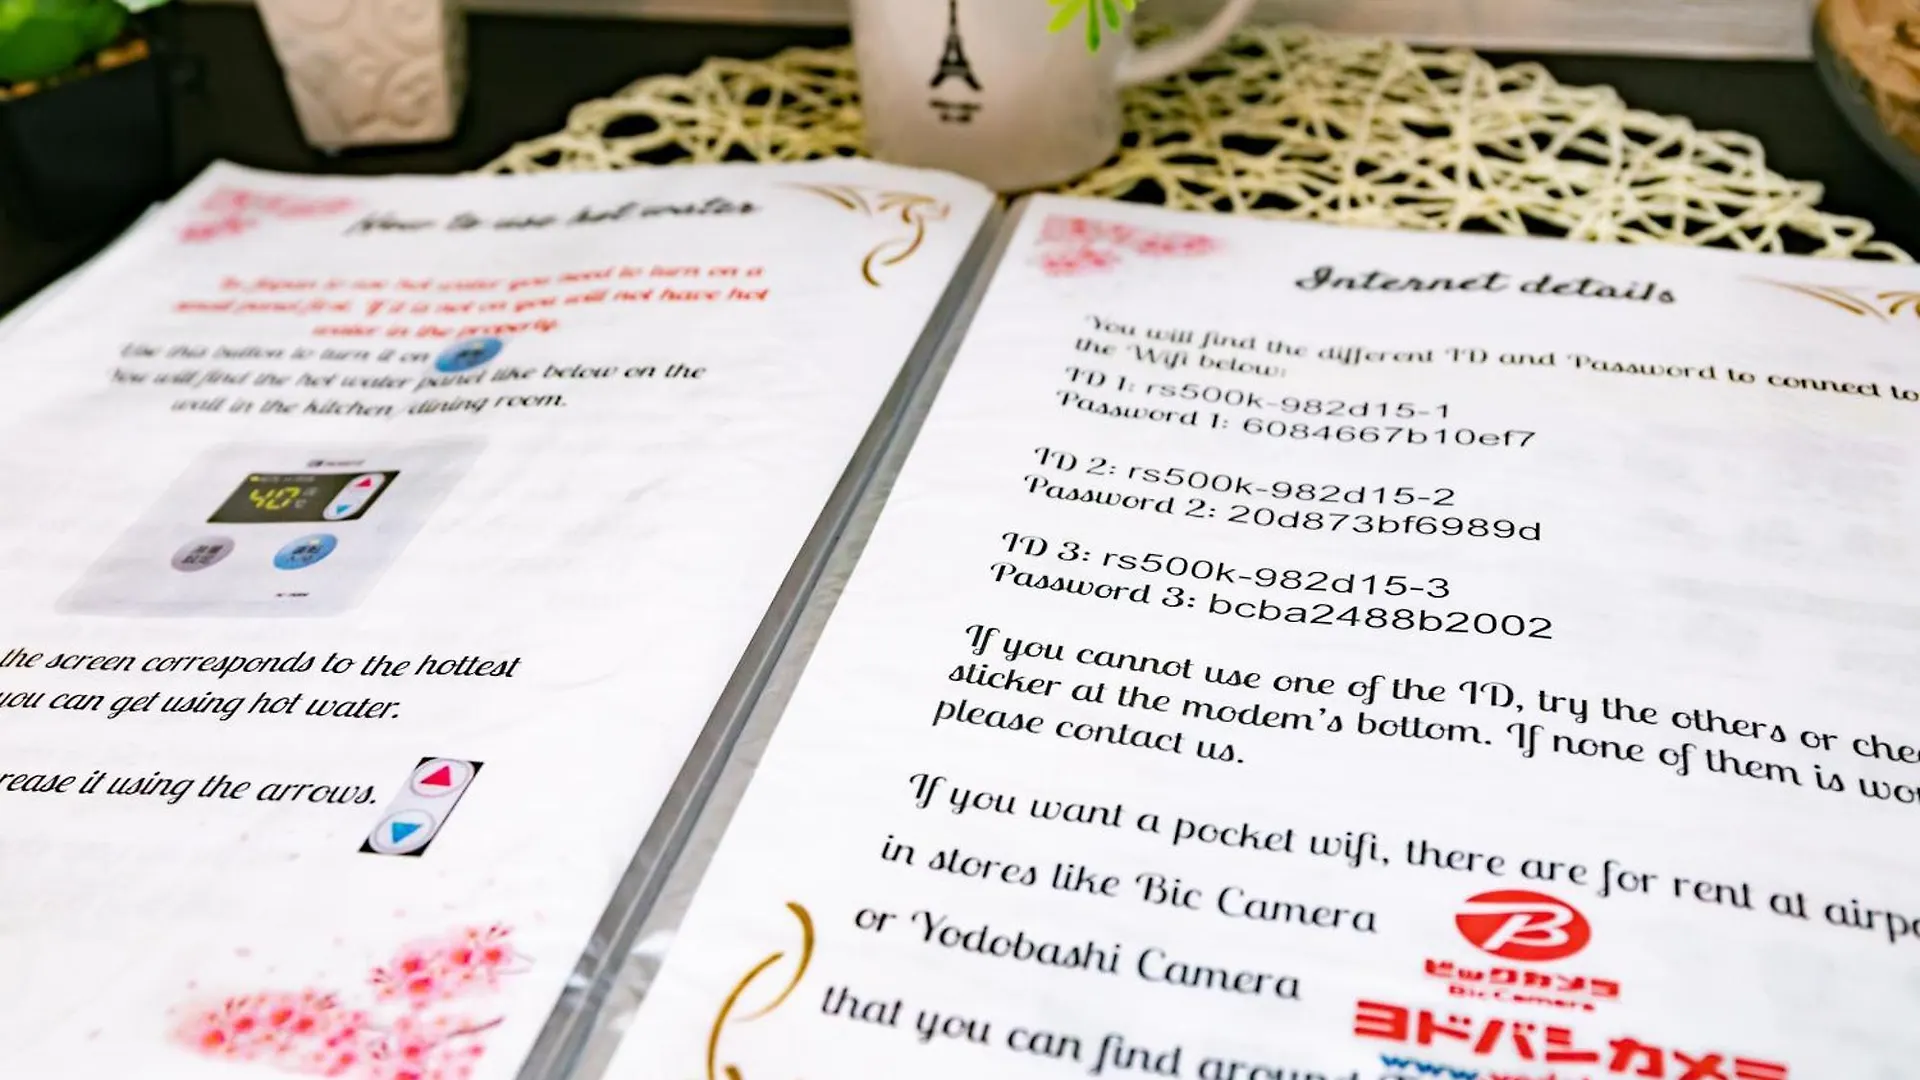 How to use hot water
In Japan to use hot water you need to turn on a
small panel first. If it is not on you will not have hot
water in the property.
Use this button to turn it on
You will find the hot water panel like below on the
wall in the kitchen/dining room.
40
the screen corresponds to the hottest
you can get using hot water.
rease it using the arrows.
Internet details
You will find the different ID and Password to connect to
the Wifi below:
ID 1: rs500k-982d15-1
Password 1: 6084667b10ef7
ID 2: rs500k-982d15-2
Password 2: 20d873bf6989d
ID 3: rs500k-982d15-3
Password 3: bcba2488b2002
If you cannot use one of the ID, try the others or che
sticker at the modem's bottom. If none of them is wo
please contact us.
If you want a pocket wifi, there are for rent at airpo
in stores like Bic Camera
B
ビックカメラ
BicCamera
or Yodobashi Camera
ヨドバシカメラ
that you can find around
www.yodo